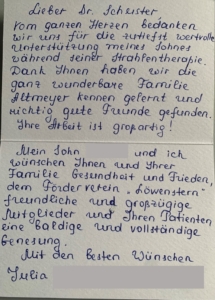 Lieber Dr. Schuster
Vom ganzen Herzen bedanken
wir uns für die zutiefst wertvolle
Unterstützung meines Sohnes
während seiner Strahlentherapie.
Dank Ihnen haben wir die
ganz wunderbare Familie
Altmeyer kennen gelernt und
richtig gute Freunde gefunden.
Ihre Arbeit ist großartig!
Mein Sohn und ich
wünschen Ihnen und Ihrer
Familie Gesundheit und Frieden,
dem Förderverein „Löwenstern"
freundliche und großzügige
Mitglieder und Ihren Patienten
eine baldige und vollständige
Genesung.
Mit den besten Wünschen
Julia